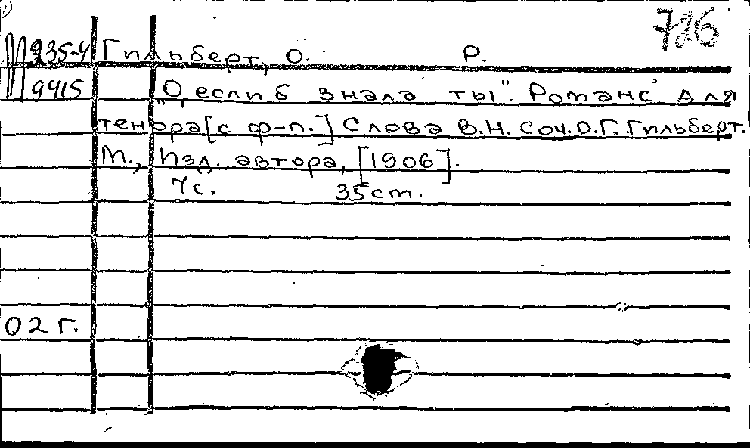 786
М 935-4 Гильберт, О. Р.
9415 "О, если б знала ты". Романс для
тенора [с ф-п.] Слова В.Н. Соч. О.Г. Гильберт.
М., Изд. автора, [1906].
7с. 35 ст.
02 г.